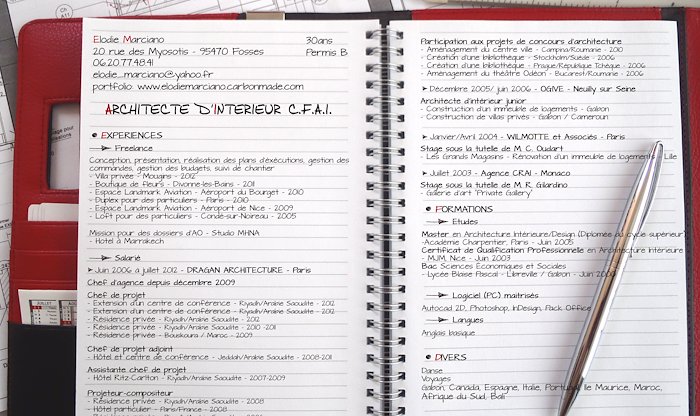 Elodie Marciano 30ans
20 rue des Myosotis - 95470 Fosses Permis B
06.20.77.48.41
elodie_marciano@yahoo.fr
portfolio: www.elodiemarciano.carbonmade.com
ARCHITECTE D'INTERIEUR C.F.A.I.
EXPERIENCES
Freelance
Conception, présentation, réalisation des plans d'exécutions, gestion des
commandes, gestion des budgets, suivi de chantier
- Villa privée - Mougins - 2012
- Boutique de fleurs - Divonne-les-Bains - 2011
- Espace Landmark Aviation - Aéroport du Bourget - 2010
- Duplex pour des particuliers - Paris - 2010
- Espace Landmark Aviation - Aéroport de Nice - 2009
- Loft pour des particuliers - Condé-sur-Noireau - 2005
Mission pour des dossiers d'AO - Studio MHNA
- Hotel à Marrakech
Salarié
Juin 2006 à juillet 2012 - DRAGAN ARCHITECTURE - Paris
Chef d'agence depuis décembre 2009
Chef de projet
- Extension d'un centre de conférence - Riyadh/Arabie Saoudite - 2012
- Extension d'un centre de conférence - Riyadh/Arabie Saoudite - 2012
- Résidence privée - Riyadh/Arabie Saoudite - 2012
- Résidence privée - Riyadh/Arabie Saoudite - 2010-2011
- Résidence privée - Bouskoura / Maroc - 2009
Chef de projet adjoint
- Hôtel et centre de conférence - Jeddah/Arabie Saoudite - 2008-2011
Assistante chef de projet
- Hôtel Ritz-Carlton - Riyadh/Arabie Saoudite - 2007-2009
Projeteur-compositeur
- Résidence privée - Riyadh/Arabie Saoudite - 2008
- Hôtel particulier - Paris/France - 2008
Participation aux projets de concours d'architecture
- Aménagement du centre ville - Campina/Roumanie - 2010
- Création d'une bibliothèque - Stockholm/Suède - 2006
- Création d'une bibliothèque - Prague/République Tchèque - 2006
- Aménagement du théâtre Odéon - Bucarest/Roumanie - 2006
Décembre 2005/ juin 2006 - OGIVE - Neuilly sur Seine
Architecte d'intérieur junior
- Construction d'un immeuble de logements - Gabon
- Construction de villas privés - Gabon / Cameroun
Janvier/Avril 2004 - WILMOTTE et Associés - Paris
Stage sous la tutelle de M. C. Oudart
- Les Grands Magasins - Rénovation d'un immeuble de logements - Lille
Juillet 2003 - Agence CRAI - Monaco
Stage sous la tutelle de M. R. Gilardino
- Gallerie d'art "Private Gallery"
FORMATIONS
Etudes
Master en Architecture Intérieure/Design (Diplômée du cycle supérieur)
-Académie Charpentier, Paris - Juin 2005
Certificat de Qualification Professionnelle en Architecture Intérieure
- MJM, Nice - Juin 2003
Bac Sciences Economiques et Sociales
- Lycée Blaise Pascal - Libreville / Gabon - Juin
Logiciel (PC) maitrisés
Autocad 2D, Photoshop, InDesign, Pack Office
Langues
Anglais basique
DIVERS
Danse
Voyages
Gabon, Canada, Espagne, Italie, Ile Maurice, Maroc,
Afrique du Sud, Bali
JUILLET